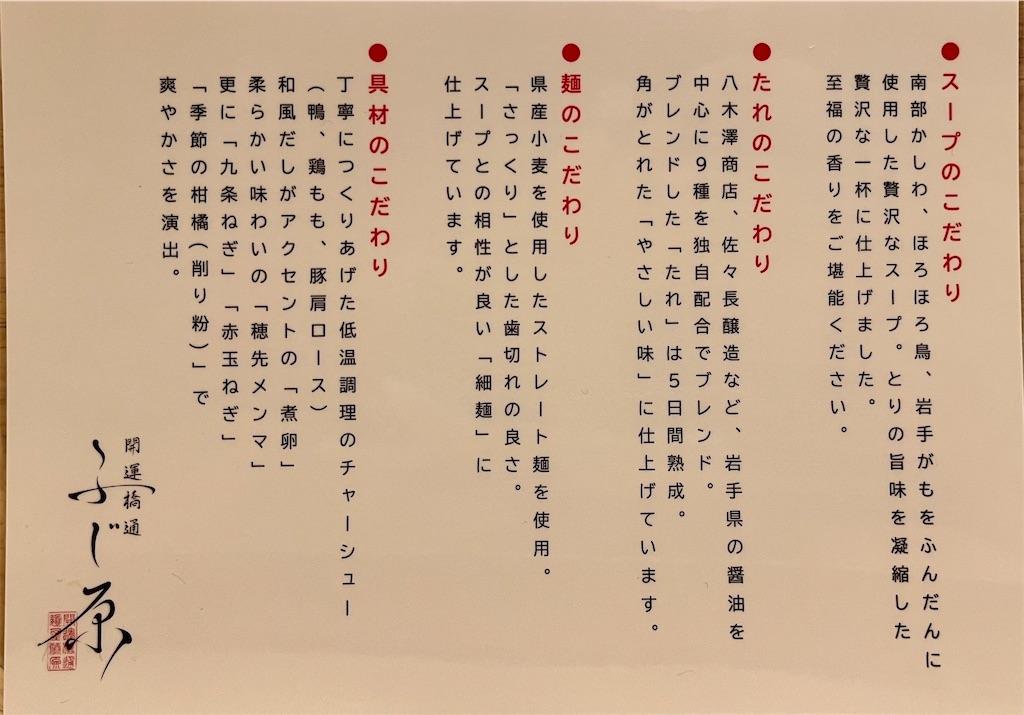 ●スープのこだわり
南部かしわ、ほろほろ鳥、岩手がもをふんだんに
使用した贅沢なスープ。とりの旨味を凝縮した
贅沢な一杯に仕上げました。
至福の香りをご堪能ください。
●たれのこだわり
八木澤商店、佐々長醸造など、岩手県の醤油を
中心に9種を独自配合でブレンド。
ブレンドした「たれ」は5日間熟成。
角がとれた「やさしい味」に仕上げています。
●麺のこだわり
県産小麦を使用したストレート麺を使用。
「さっくり」とした歯切れの良さ。
スープとの相性が良い「細麺」に
仕上げています。
●具材のこだわり
丁寧につくりあげた低温調理のチャーシュー
（鴨、鶏もも、豚肩ロース）
和風だしがアクセントの「煮卵」
柔らかい味わいの「穂先メンマ」
更に「九条ねぎ」「赤玉ねぎ」
「季節の柑橘（削り粉）」で
爽やかさを演出。
開運橋通
ふじ原